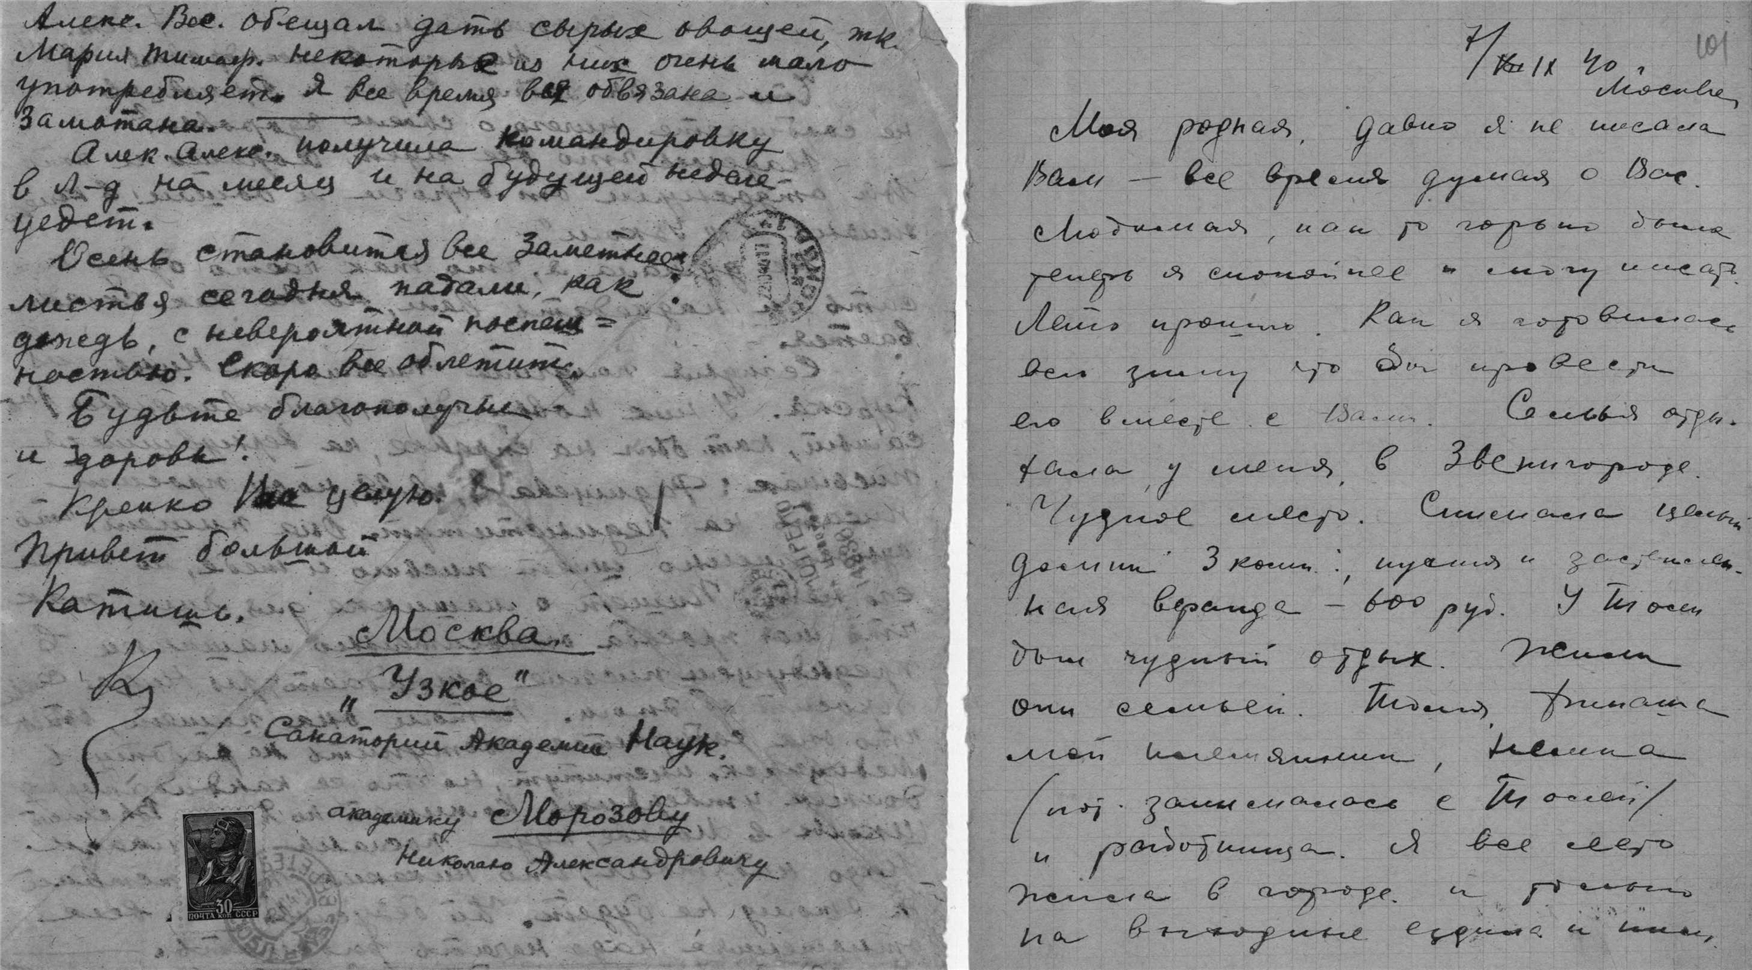 Алекс. Вас. обещал дать сырых овощей, т.к.
Мария Тимоф. некоторые из них очень мало
употребляет. Я все время вся обвязана и
замотана.
Алек. Алекс. получила командировку
в Л-д на месяц и на будущей неделе
уедет.
Осень становится все заметнее:
листья сегодня падали, как
дождь, с невероятной поспеш=
ностью. Скоро все облетит.
Будьте благополучны
и здоровы!
Крепко целую.
Привет большой
Катишь.
Москва.
„Узкое"
Санаторий Академии Наук.
академику Морозову
Николаю Александровичу
30
ПОЧТА СССР
101
7/IX 40
Москва
Моя родная, давно я не писала
Вам — все время думая о Вас.
Любимая, как то горько было
теперь я спокойнее и могу писать.
Лето прошло. Как я готовилась
всю зиму что бы провести
его вместе с Вами. Семья отды-
хала у меня в Звенигороде.
Чудное место. Снимала целый
домик 3 комн., кухня и застеклен-
ная веранда — 600 руб. У Томи
был чудный отдых. Жили
они семьей. Томя,
мой племянник, немка
(пот. занималась с Томей)
и работница. Я все лето
жила в городе и только
на выходные ездила к ним.